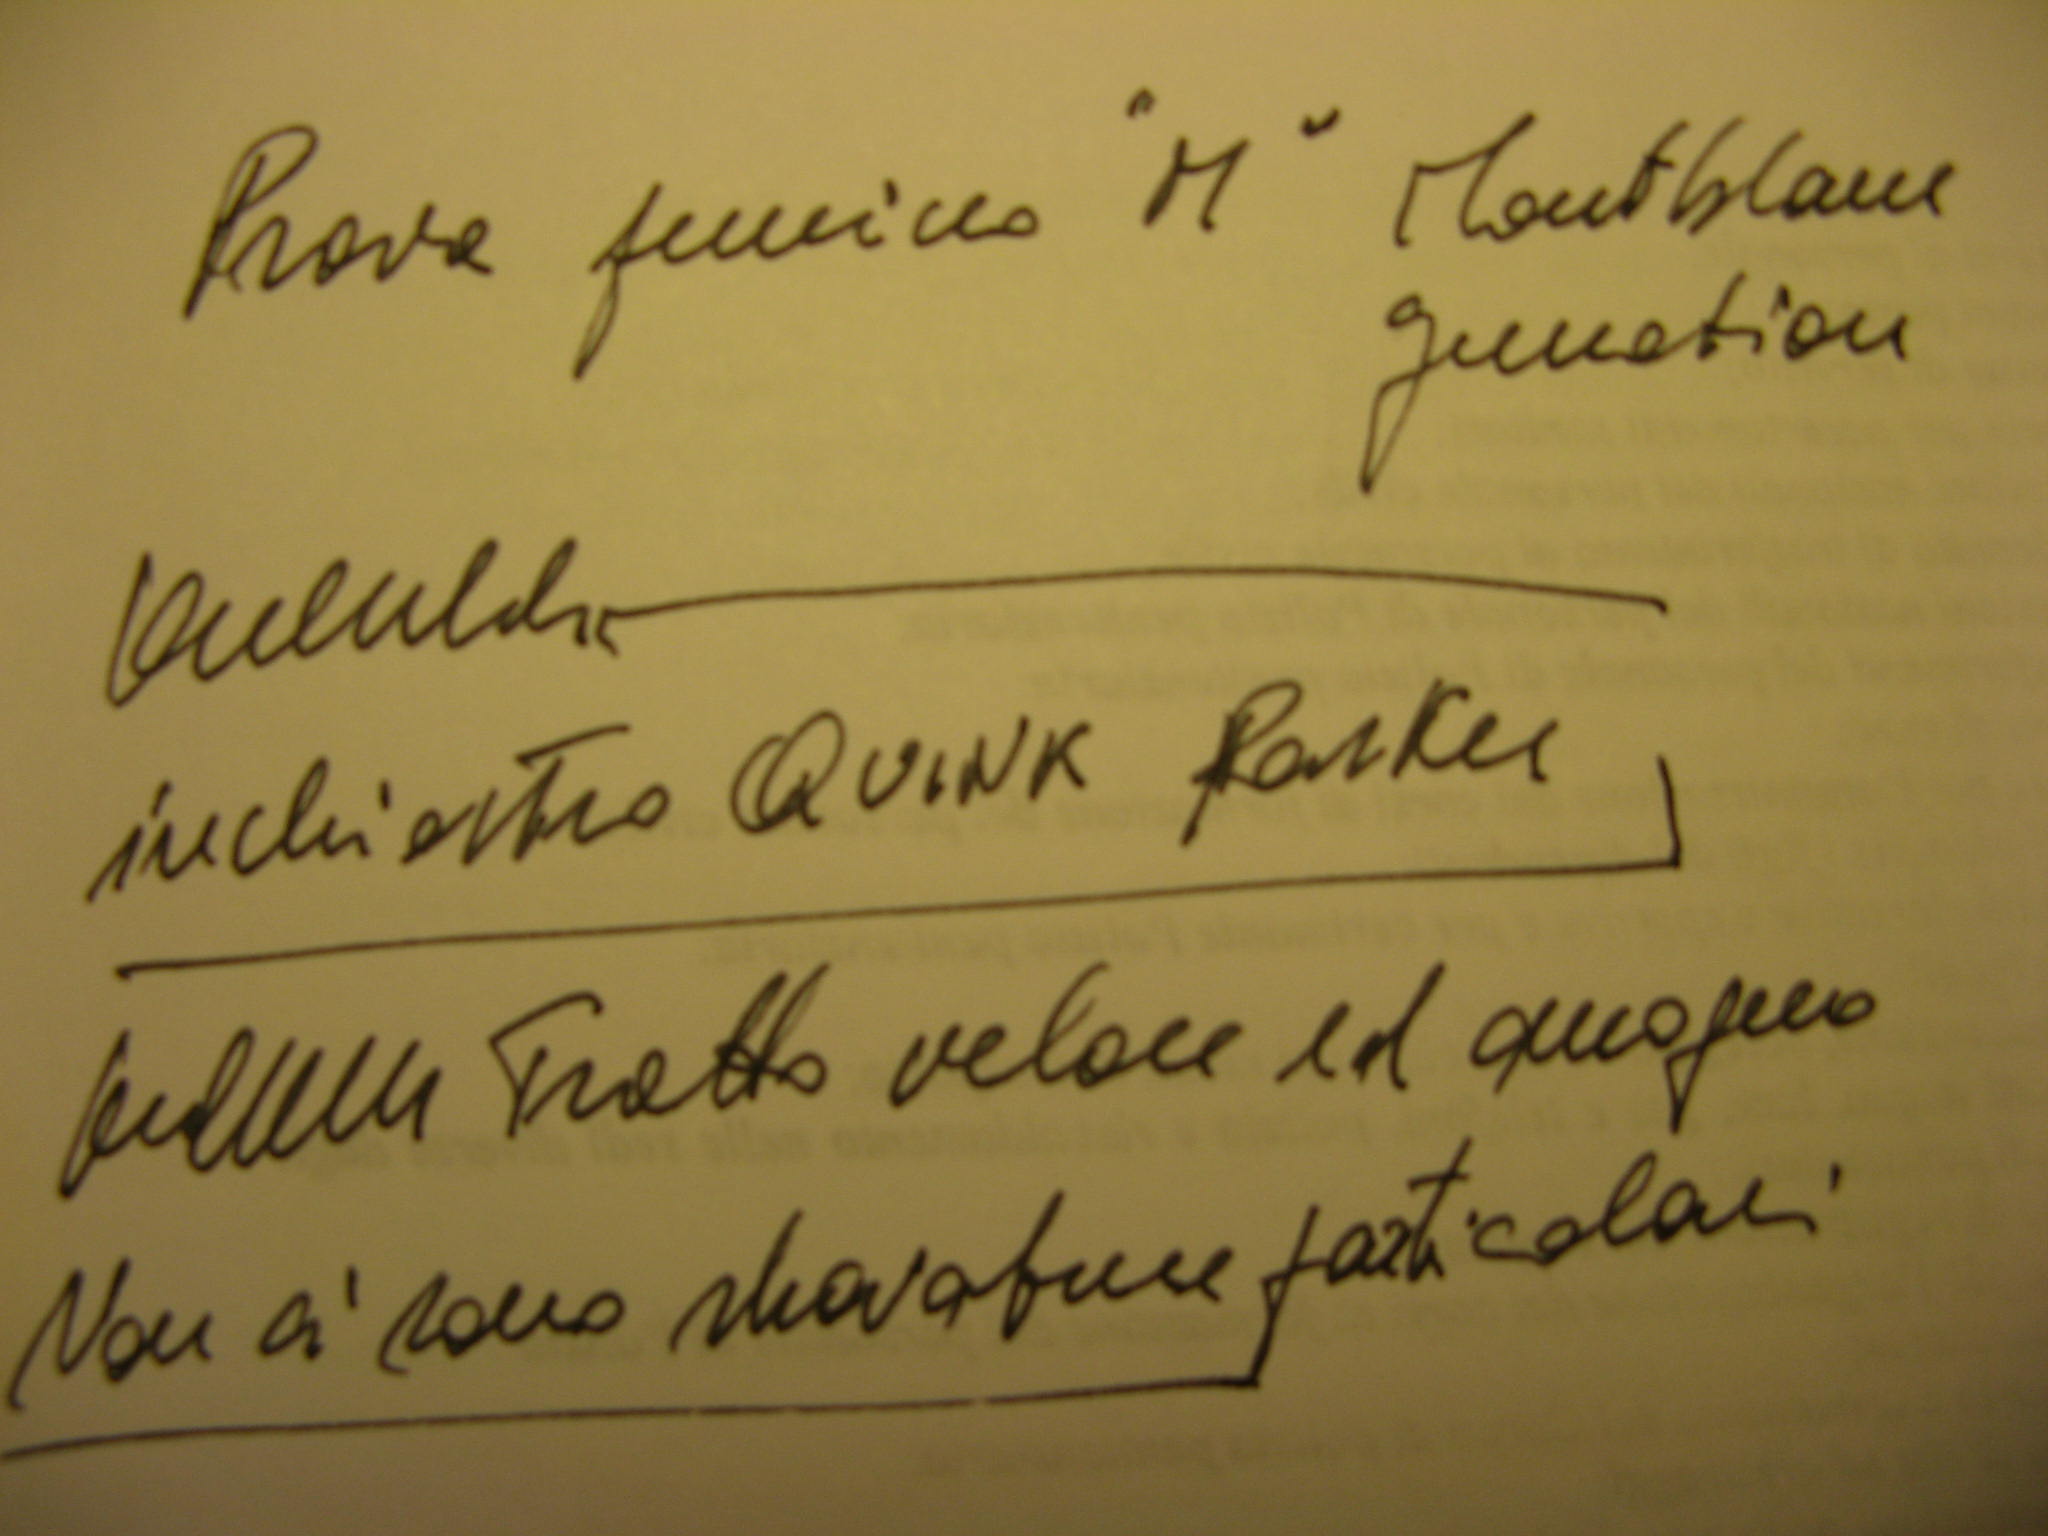 Prova pennino "M" Montblanc
generation
inchiostro QUINK Parker
Tratto veloce ed omogeneo
Non ci sono sbavature particolari